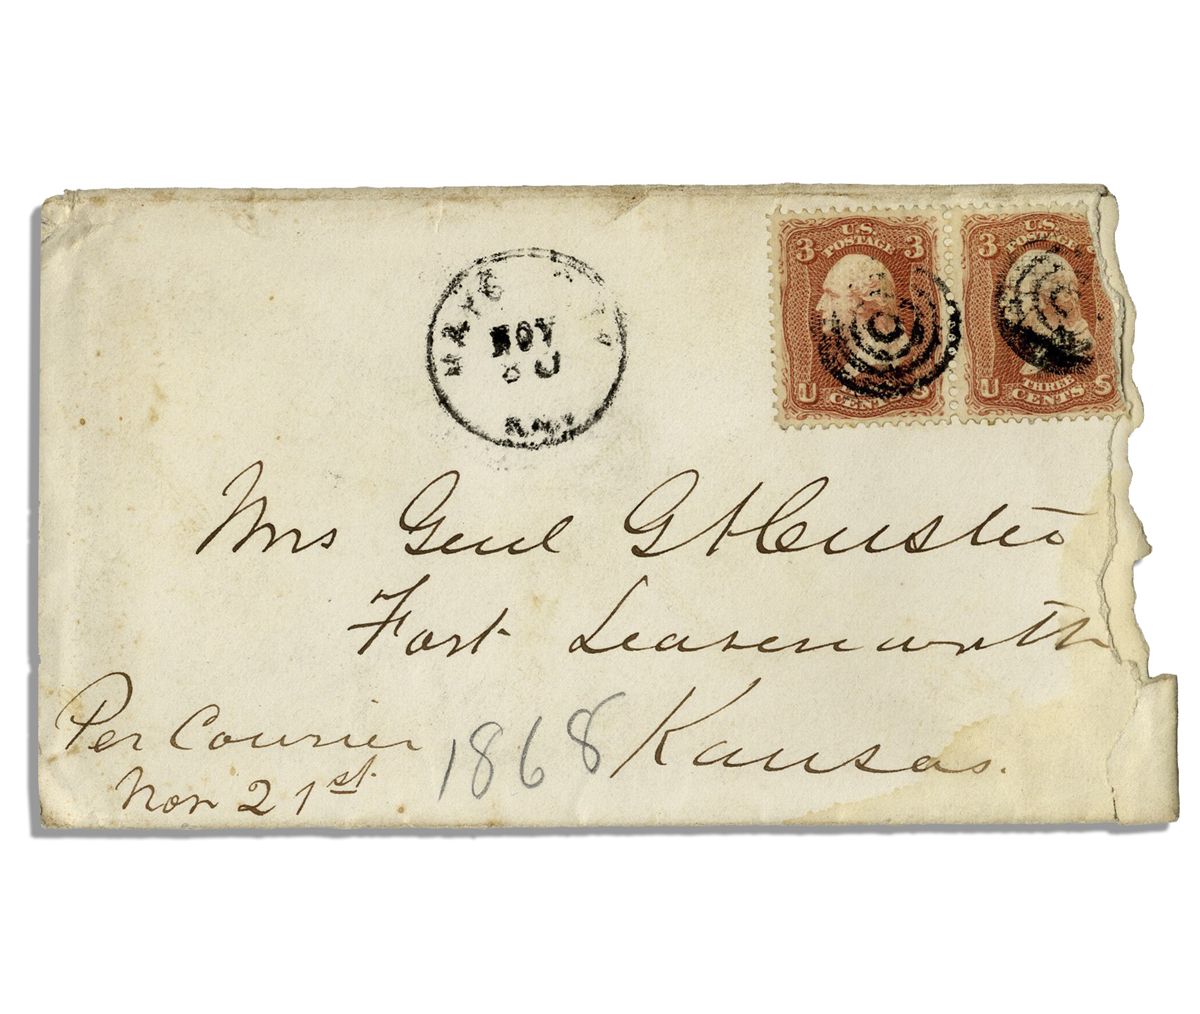 HAYS CITY
NOV
30
KAS.
U.S. POSTAGE
3 3
U S
CENTS
U.S. POSTAGE
3
U S
THREE CENTS
Mrs Genl G A Custer
Fort Leavenworth
Kansas.
Per Courier
Nov 21st
1868